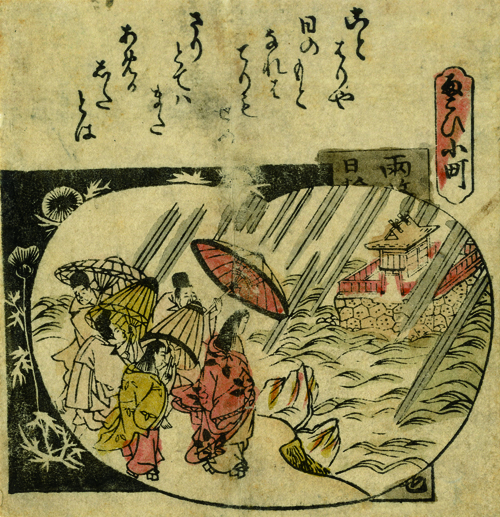 雨こひ小町
ことはりや
日のもと
なれは
てりもせめ
さりとてハ
また
あめか
したとは